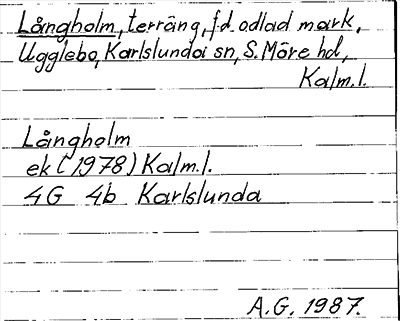 Långholm, terräng, f.d. odlad mark,
Ugglebo, Karlslunda sn, S. Möre hd,
Kalm.l.
Långholm
ek (1978) Kalm.l.
4G 4b Karlslunda
A.G. 1987.